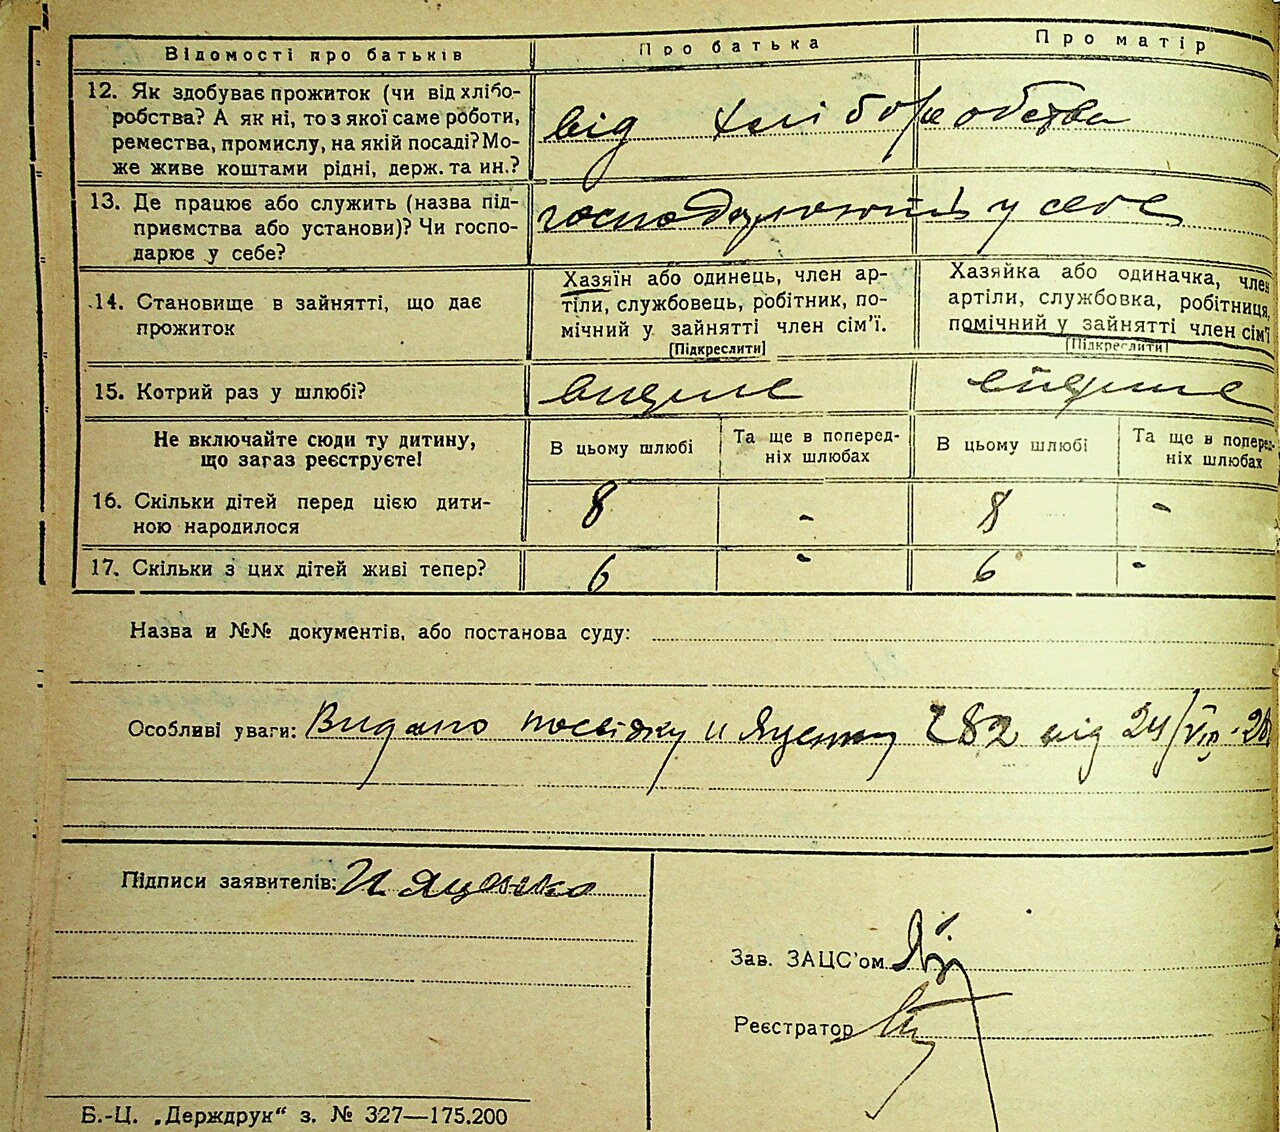 Відомості про батьків
Про батька
Про матір
12. Як здобуває прожиток (чи від хлібо-
робства? А як ні, то з якої саме роботи,
ремества, промислу, на якій посаді? Мо-
же живе коштами рідні, держ. та ин.?
від хліборобства
13. Де працює або служить (назва під-
приємства або установи)? Чи госпо-
дарює у себе?
господарюють у себе
14. Становище в зайнятті, що дає
прожиток
Хазяїн або одинець, член ар-
тіли, службовець, робітник, по-
мічний у зайнятті член сім'ї.
[Підкреслити]
Хазяйка або одиначка, член
артіли, службовка, робітниця,
помічний у зайнятті член сім'ї
[Підкреслити]
15. Котрий раз у шлюбі?
Не включайте сюди ту дитину,
що зараз реєструєте!
В цьому шлюбі
Та ще в поперед-
ніх шлюбах
В цьому шлюбі
Та ще в поперед-
ніх шлюбах
16. Скільки дітей перед цією дити-
ною народилося
8 - 8 -
17. Скільки з цих дітей живі тепер?
6 - 6 -
Назва и №№ документів, або постанова суду:
Особливі уваги: Видано посвідку и Яценку 282 від 24/VIII-28
Підписи заявителів: И Яценко
Зав. ЗАЦС'ом
Реєстратор
Б.-Ц. „Держдрук“ з. № 327—175.200